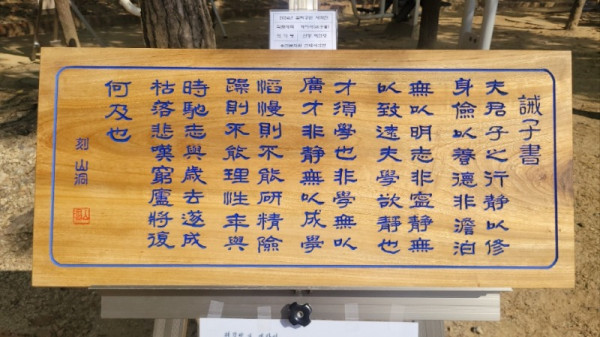 誡子書
夫君子之行静以修
身儉以養德非澹泊
無以明志非寧静無
以致遠夫學欲静也
才須學也非學無以
廣才非静無以成學
慆慢則不能研精險
躁則不能理性年與
時馳志與歲去遂成
枯落悲嘆窮廬將復
何及也
刻 山洞